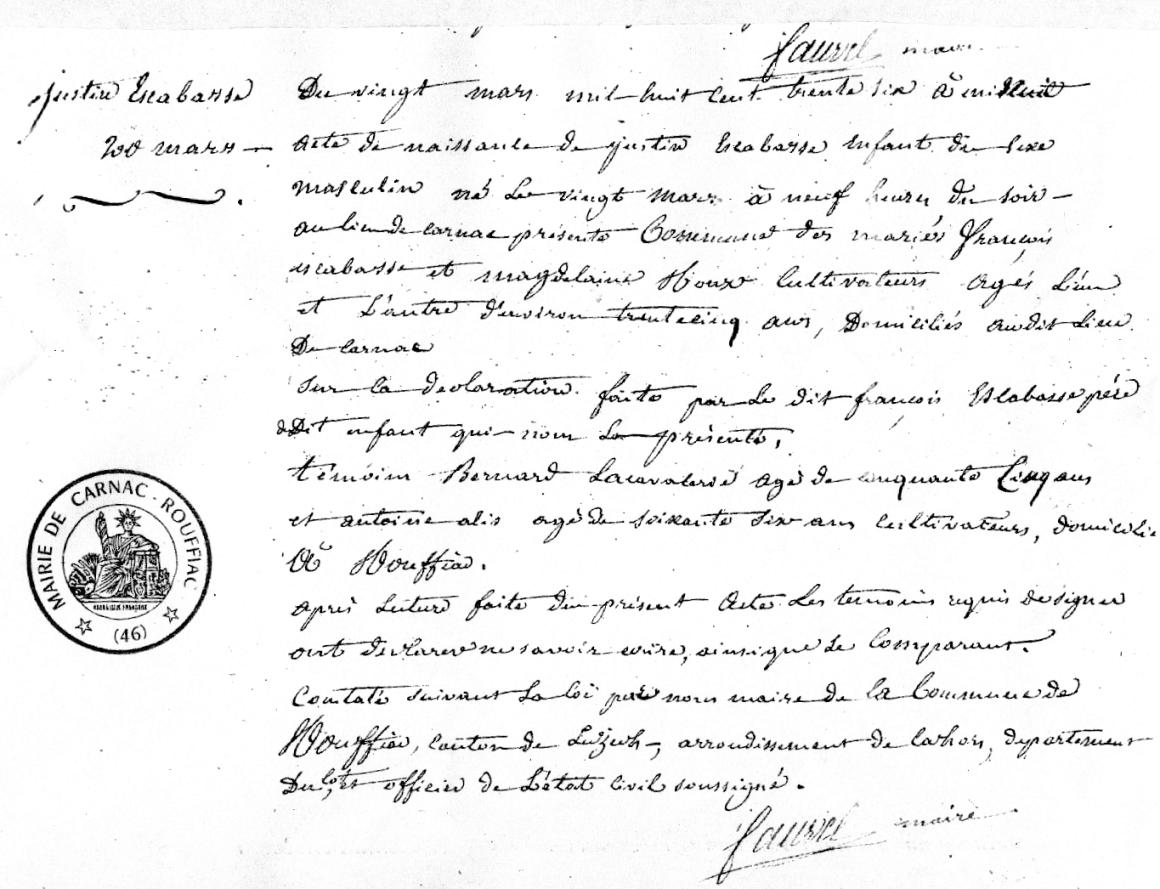 faurel maire
justin Escabasse
20 mars
Du vingt mars mil huit cent trente six à minuit
acte de naissance de justin Escabasse Enfant du sexe
masculin né le vingt mars à neuf heures du soir
au lieu de carnac présente Commune des mariés françois
escabasse et magdelaine Roux Cultivateurs agés L'un
et L'autre d'environ trentecinq ans, Domiciliés audit Lieu
De carnac
Sur la declaration faite par Le dit françois Escabasse père
dudit enfant qui nous La présenté,
témoins Bernard Lacavalerie agé de cinquante Cinq ans
et antoine alis agé de soixante Six ans Cultivateurs, domicilié
à Rouffiac.
après Lecture faite du présent acte Les temoins requis de signer
ont declarer ne savoir ecrire, ainsi que Le Comparant.
Contaté suivant La Loi par nous maire de la Commune de
Rouffiac, canton de Luzech, arrondissement de Cahors, departement
Du lot, et officier de L'état Civil soussigné.
faurel maire
MAIRIE DE CARNAC-ROUFFIAC
RÉPUBLIQUE FRANÇAISE
(46)